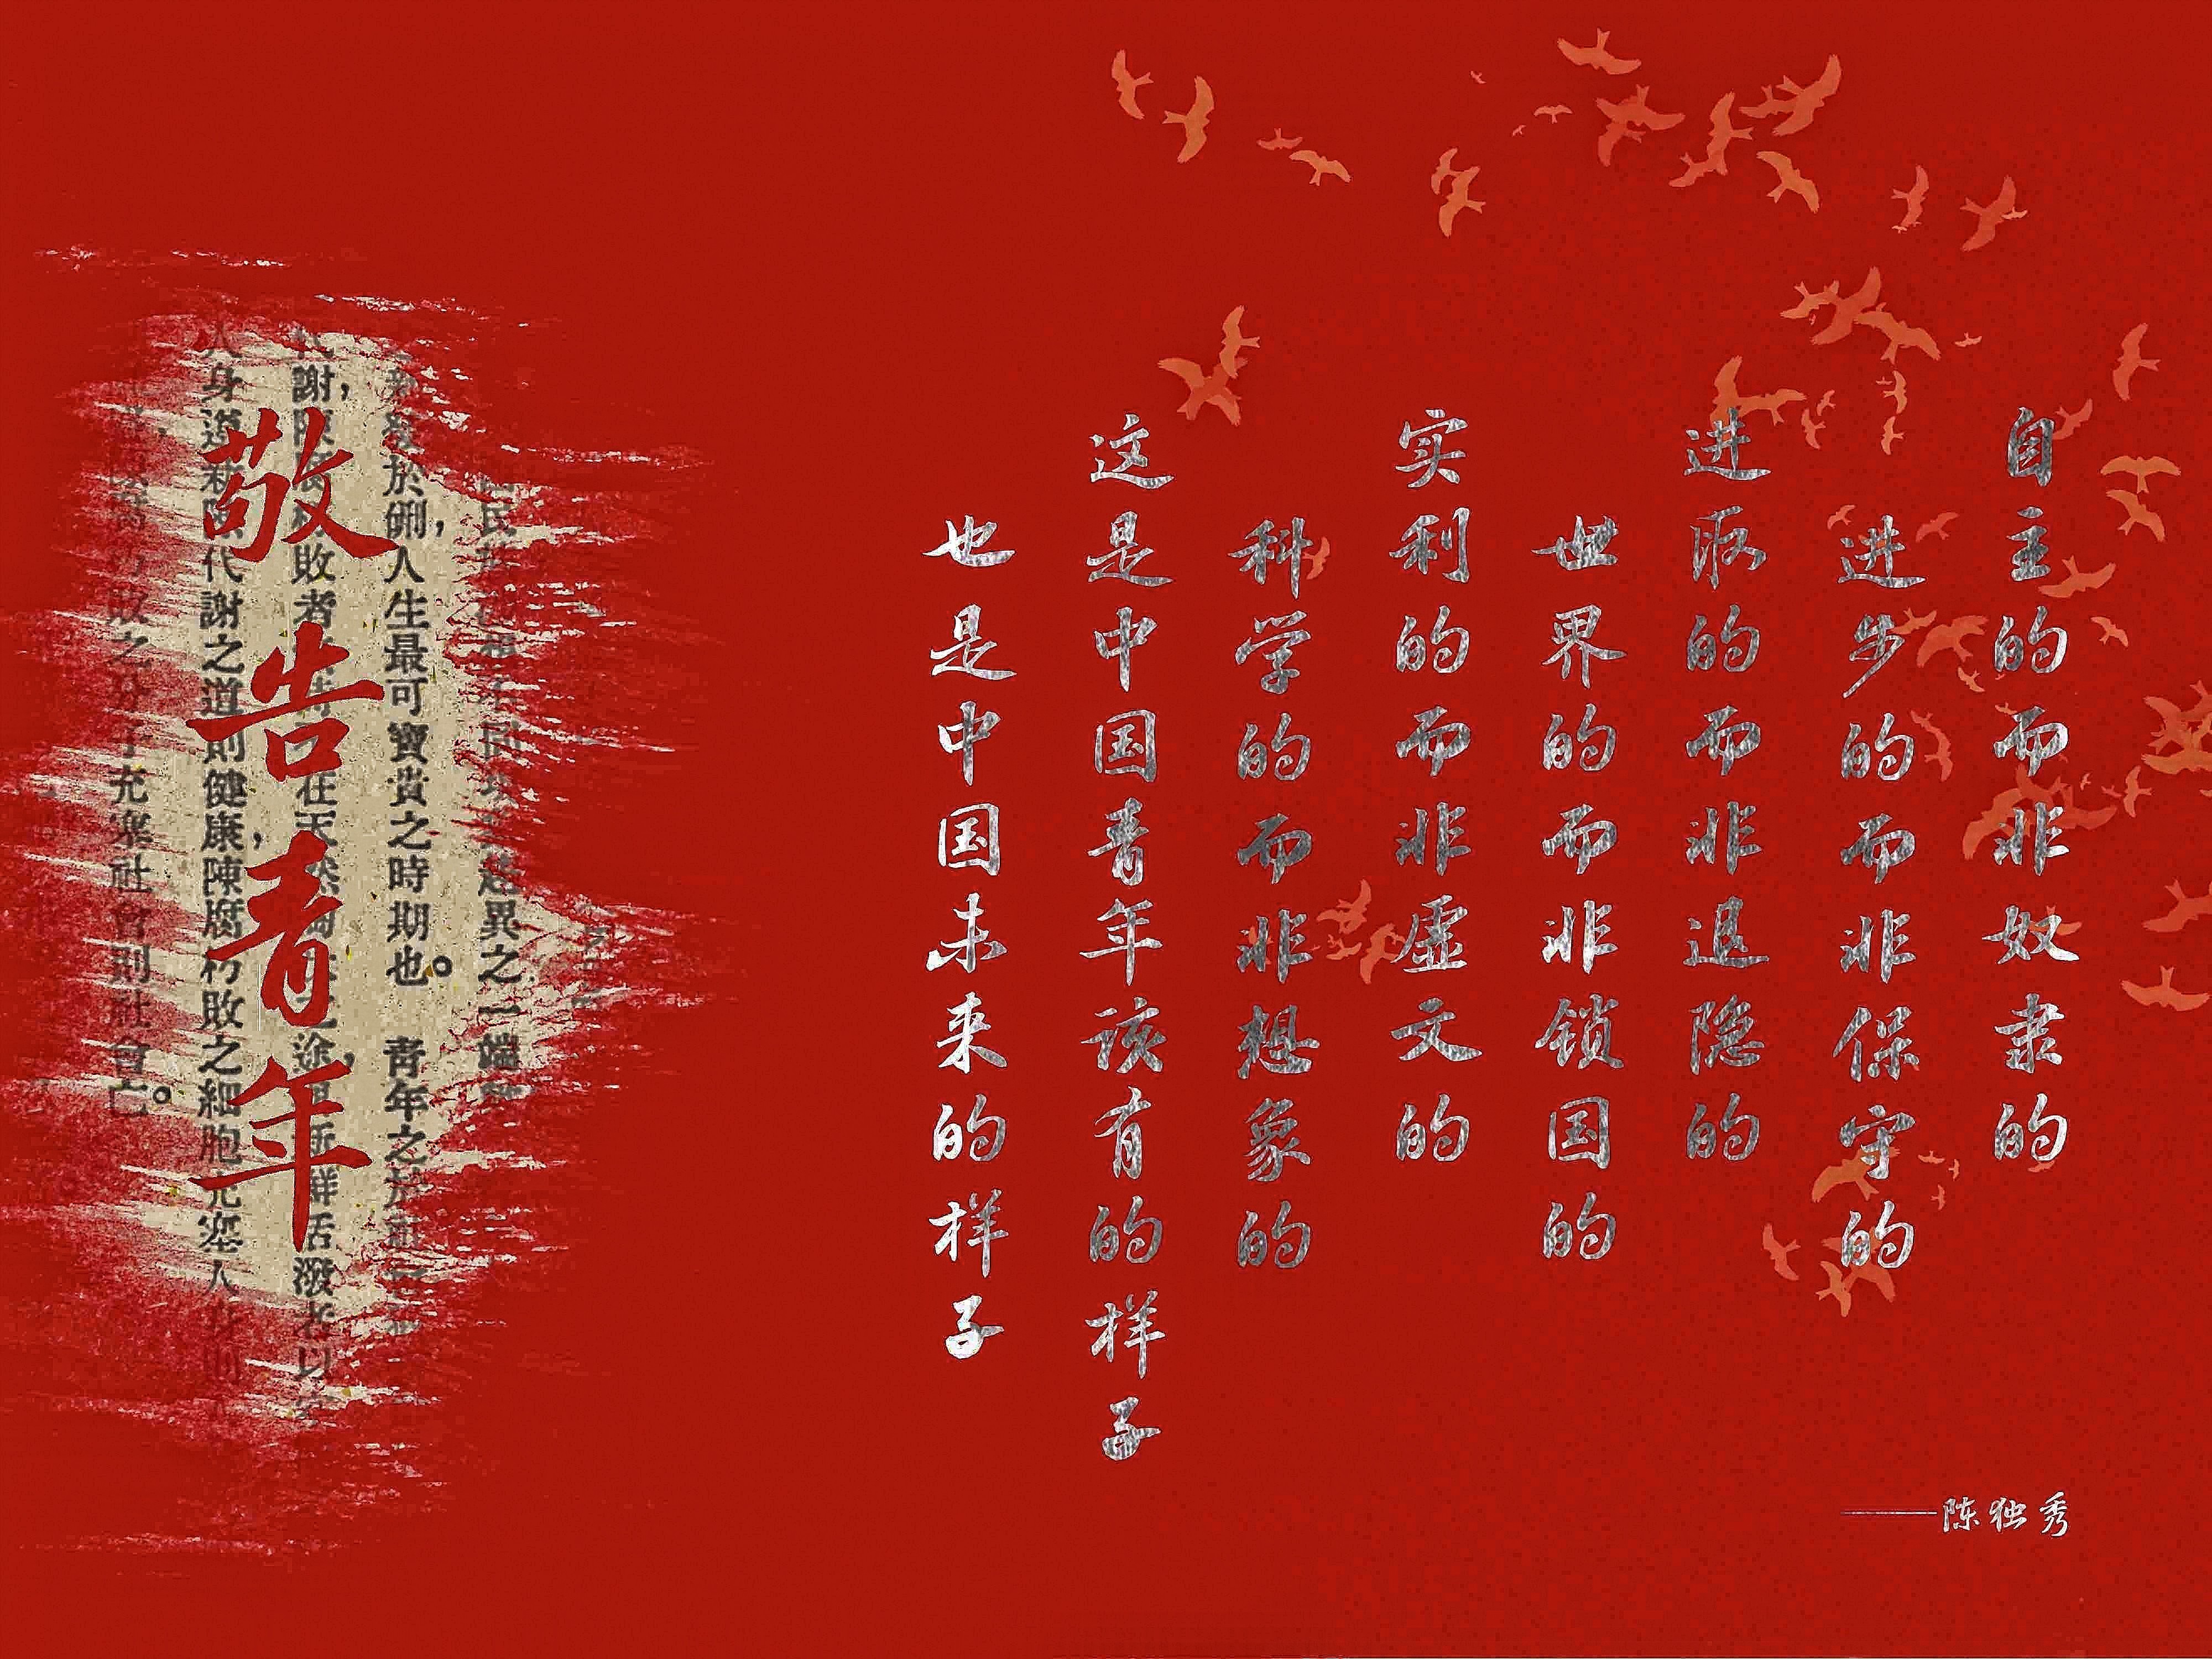 自主的而非奴隶的
进步的而非保守的
进取的而非退隐的
世界的而非锁国的
实利的而非虚文的
科学的而非想象的
这是中国青年该有的样子
也是中国未来的样子
——陈独秀
敬告青年
民
異之一端
於刱，人生最可寶貴之時期也。青年之於
謝，敗者在天然途，新鮮活潑者以
身遵新陳代謝之道則健康，陳腐朽敗之細胞充塞人身則
敗之分子充塞社會則社會亡。